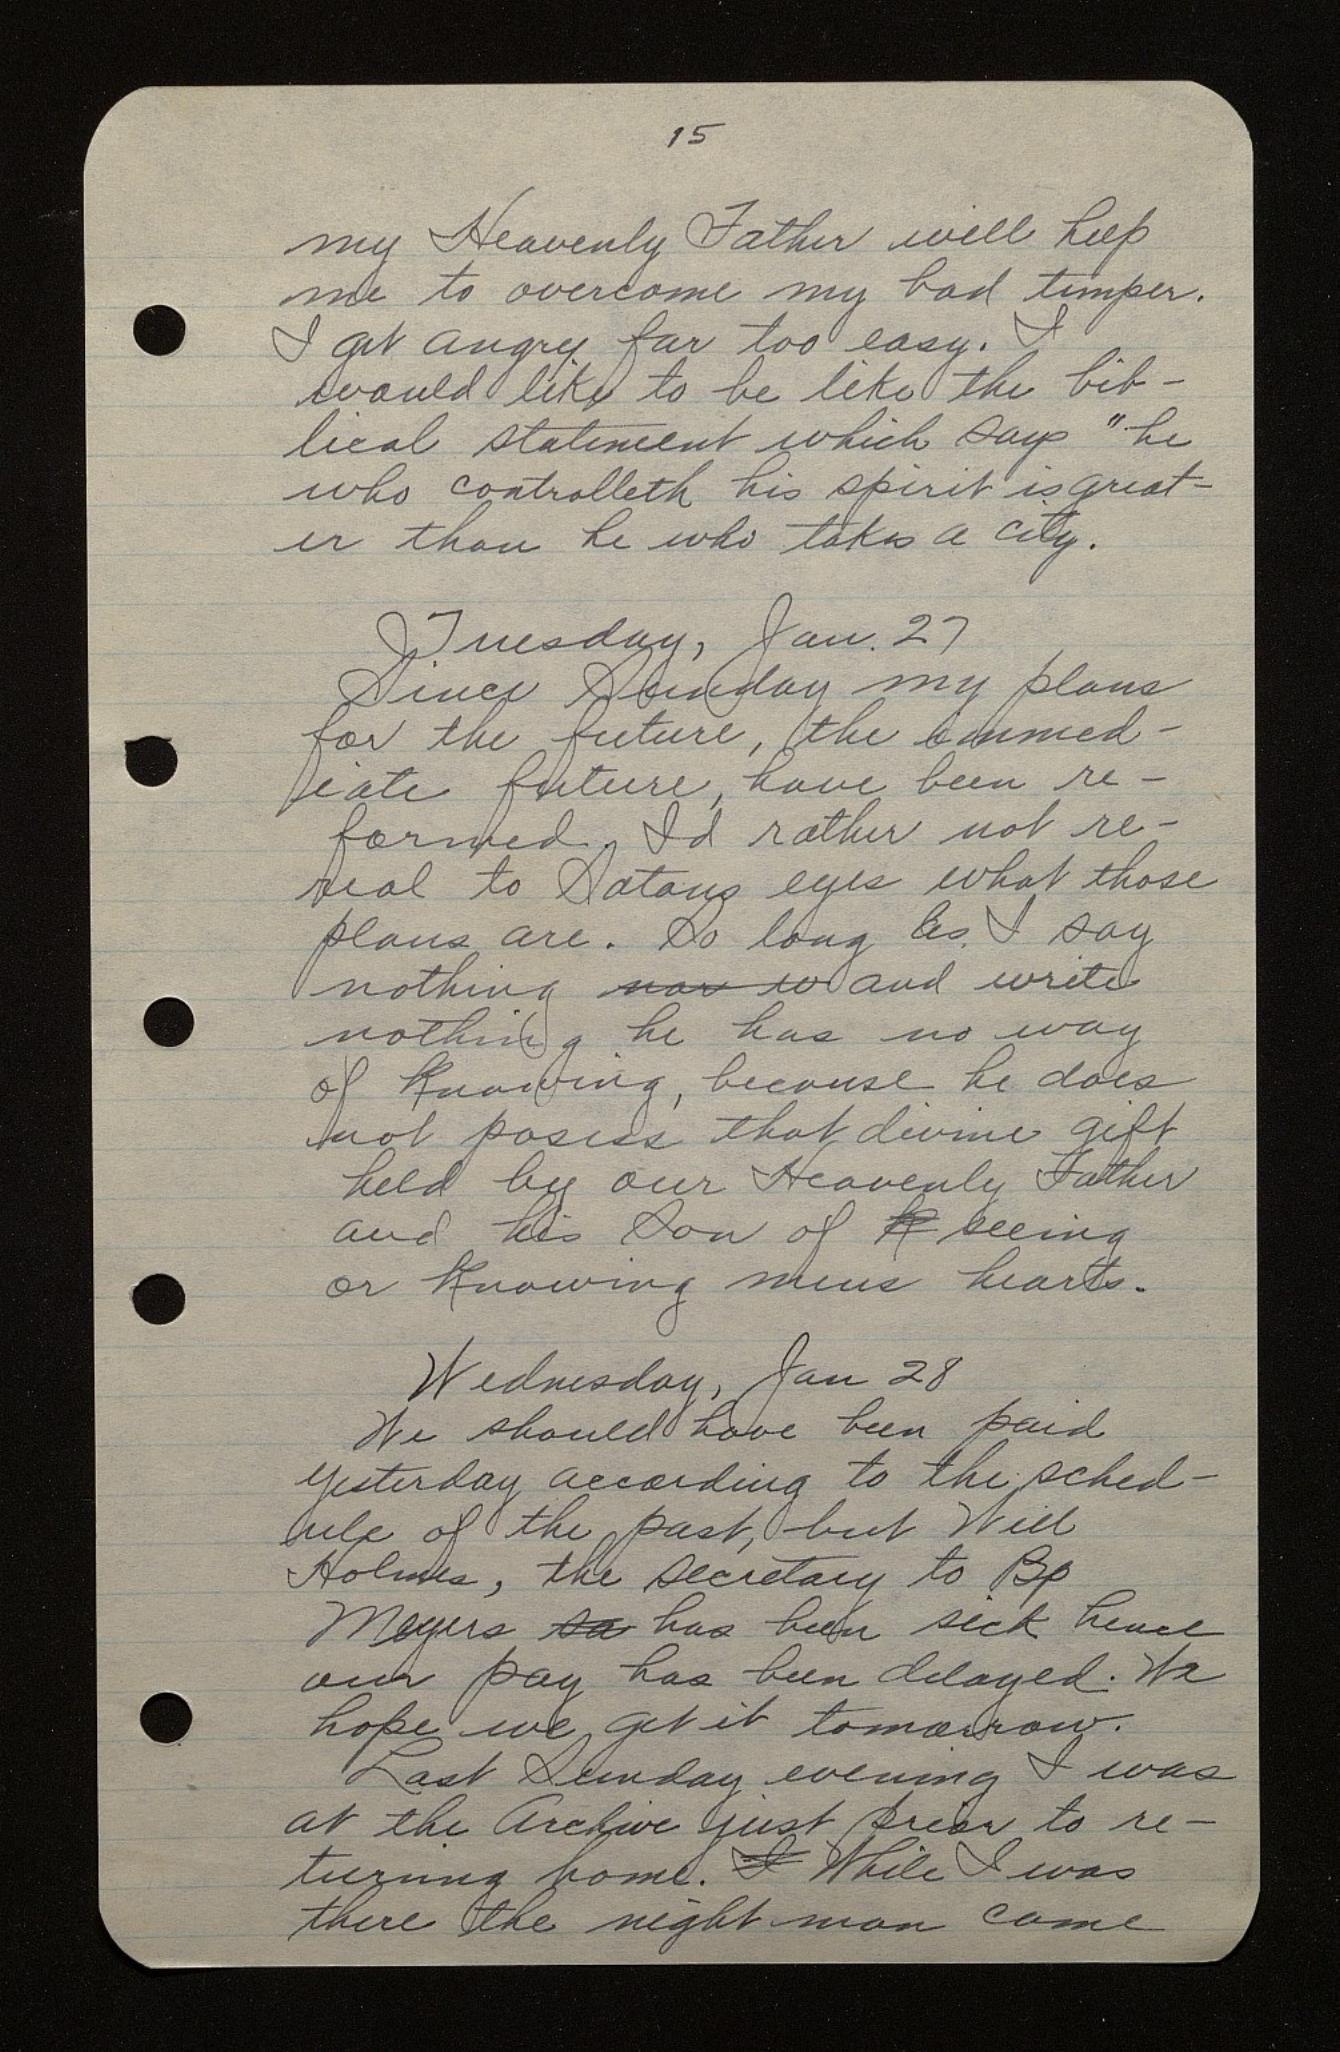 15
my Heavenly Father will help
me to overcome my bad temper.
I get angry far too easy. I
would like to be like the bib-
lical statement which says "he
who controlleth his spirit is great-
er than he who takes a city.
Tuesday, Jan. 27
Since Sunday my plans
for the future, the immed-
iate future, have been re-
formed. I'd rather not re-
veal to Satans eyes what those
plans are. So long as I say
nothing nor w and write
nothing he has no way
of knowing, because he does
not posess that divine gift
held by our Heavenly Father
and his Son of seeing
or knowing mens hearts.
Wednesday, Jan 28
We should have been paid
yesterday according to the sched-
ule of the past, but Will
Holmes, the secretary to Bp
Meyers sa has been sick hence
our pay has been delayed. We
hope we get it tomorrow.
Last Sunday evening I was
at the Archive just prior to re-
turning home. I While I was
there the night man came